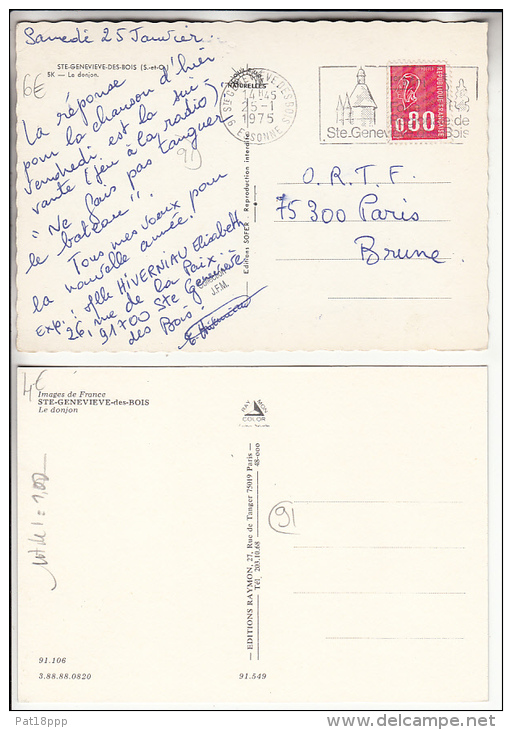 Samedi 25 Janvier.
STE-GENEVIEVE-DES-BOIS (S.-et-O.)
5K — Le donjon.
6€
NATURELLES
La réponse
pour la chanson d'hier
Vendredi est la sui-
vante (jeu à la radio)
"Ne fais pas tanguer
le bateau".
Tous mes vœux pour
la nouvelle année.
Exp: Mlle HIVERNIAU Elisabeth
26, rue de la Paix.
91700 Ste Geneviève
des Bois
91
J.F.M.
Editions SOFER - Reproduction interdite
91 STE GENEVIEVE DES BOIS
14H45
25-1
1975
ESSONNE
Ste. Genev
Bois
0,80
REPUBLIQUE FRANÇAISE
O.R.T.F.
75300 Paris
Brune
4€
Images de France
STE-GENEVIEVE-des-BOIS
Le donjon
RAY MON
COLOR
91
— EDITIONS RAYMON, 27, Rue de Tanger 75019 Paris —
Tél. 203.10.68
48-000
91.106
3.88.88.0820
91.549
Pat18ppp
delcampe.net